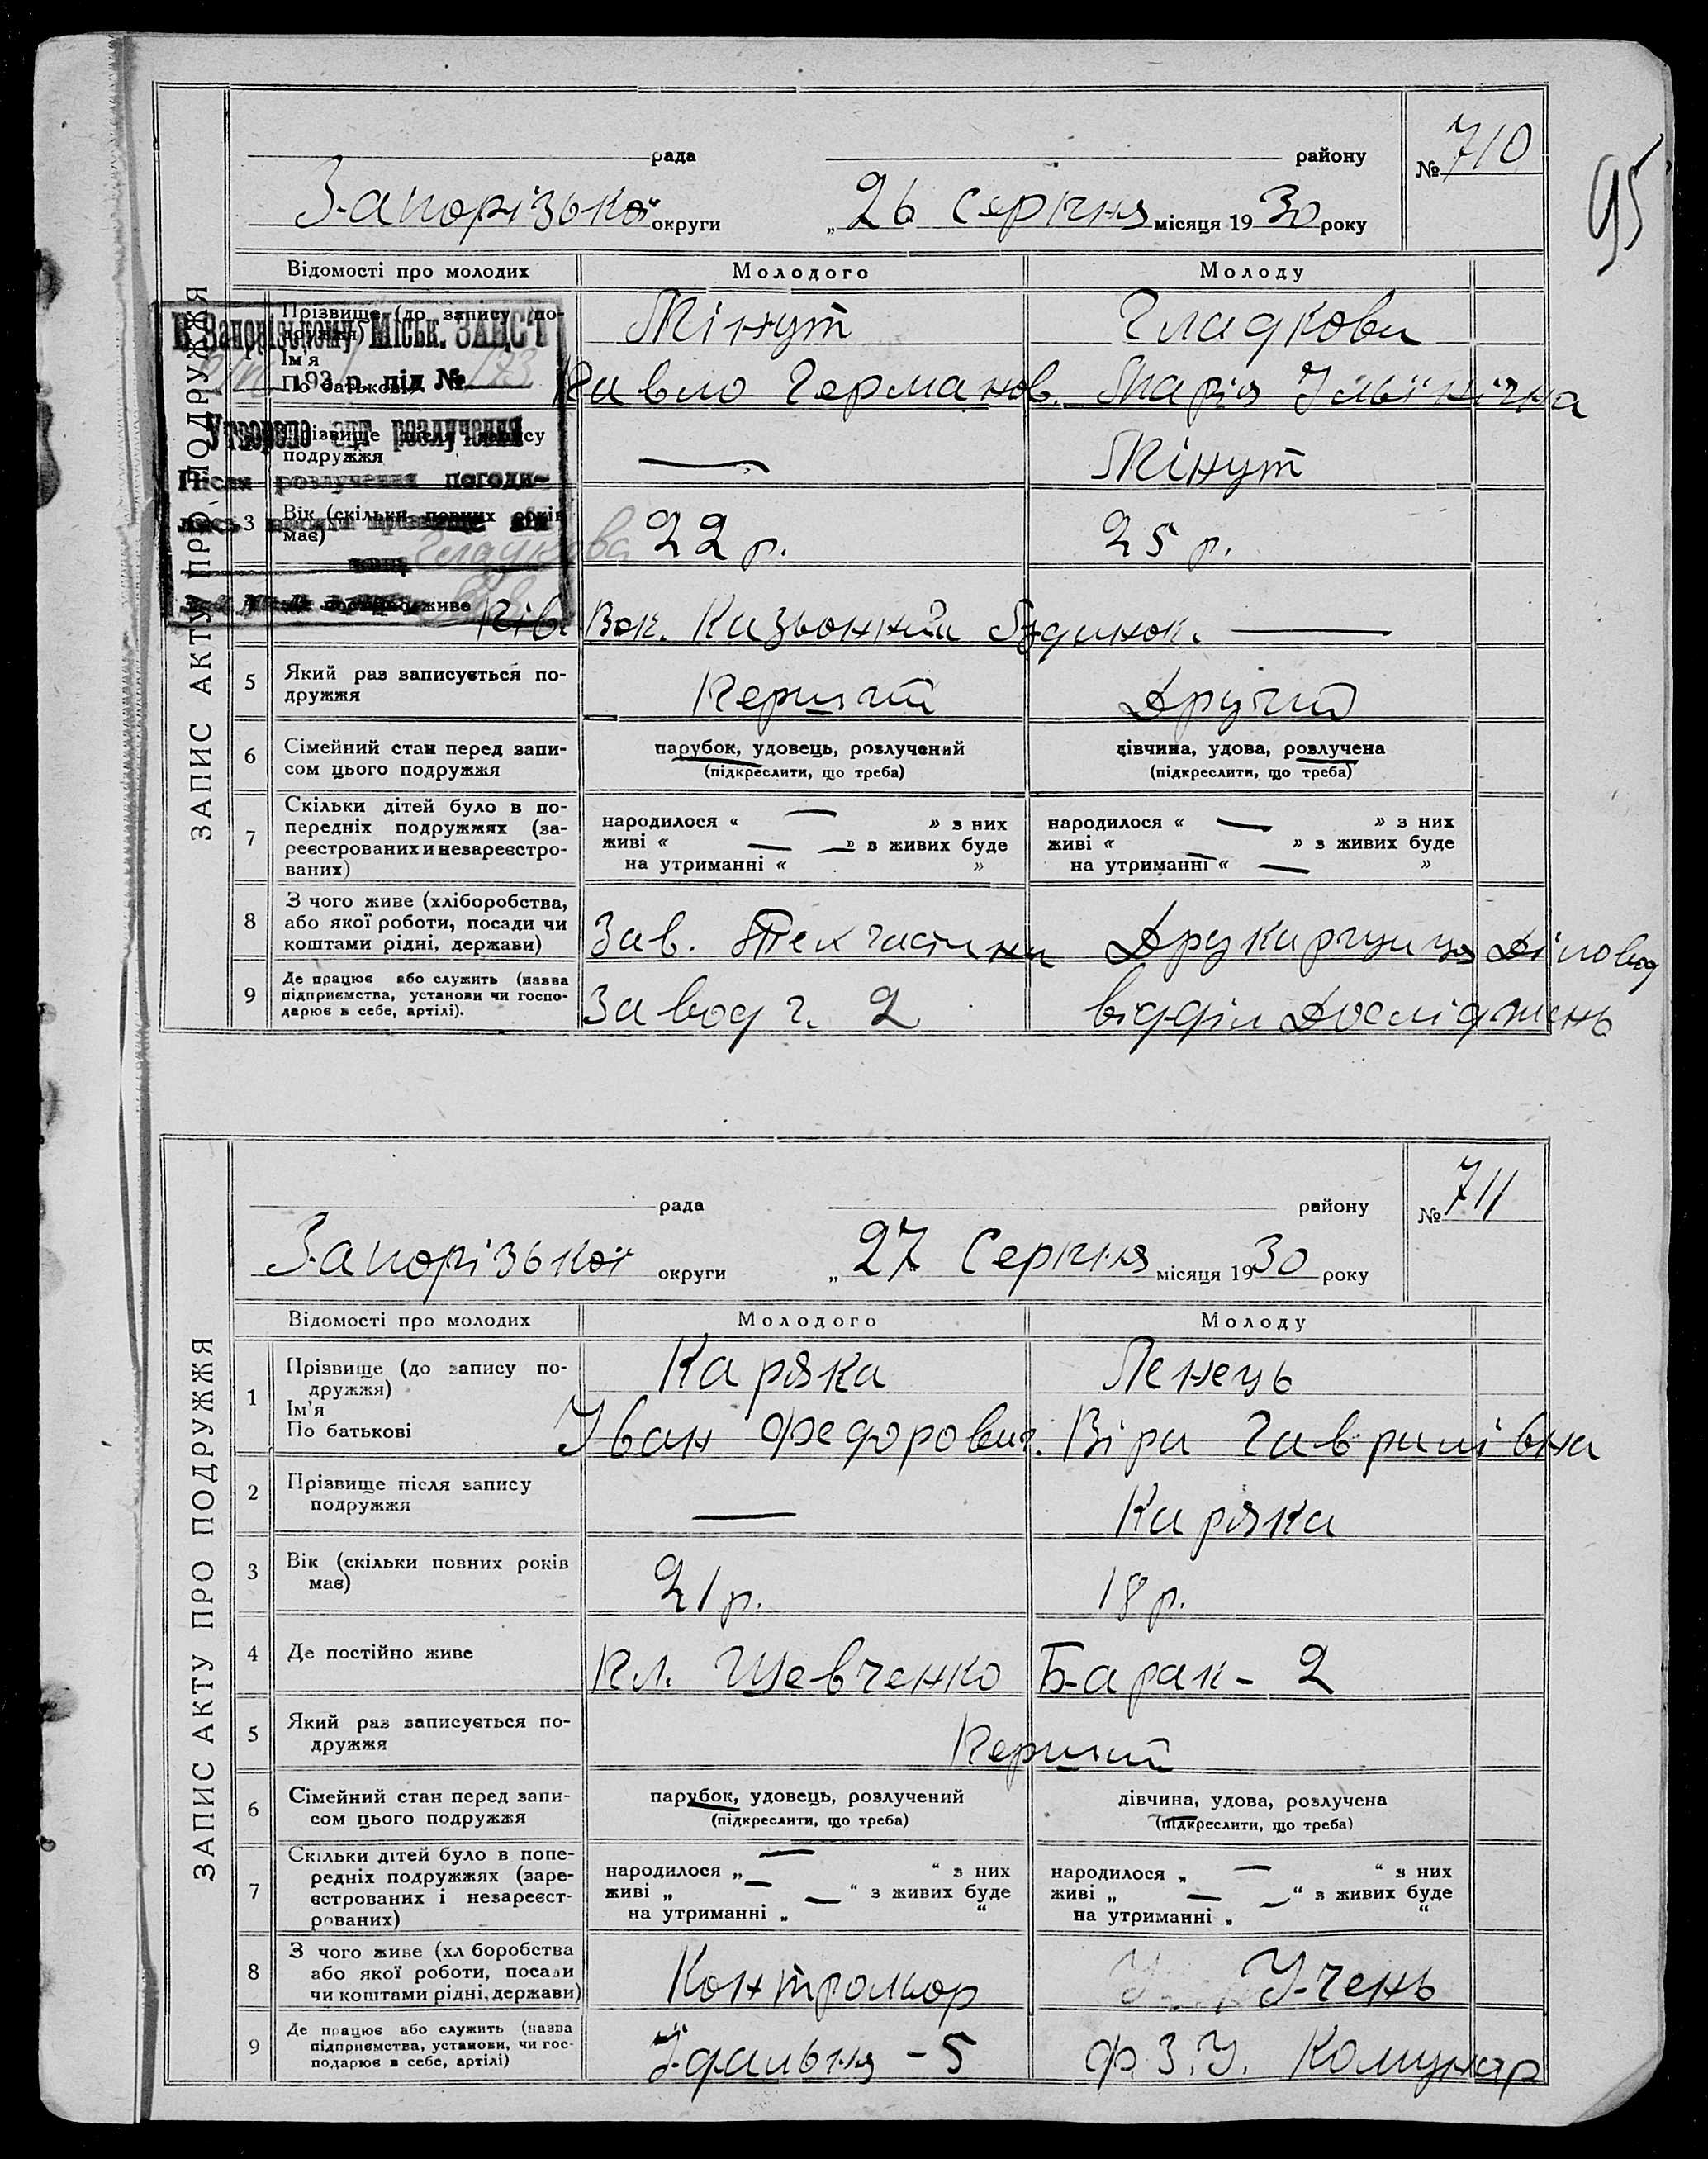 95
ЗАПИС АКТУ ПРО ПОДРУЖЖЯ
рада району № 710
Запорізької округи „26 Серпня місяця 1930 року
Відомості про молодих Молодого Молоду
Прізвище (до запису по-
дружжя) Мінут Гладкова
Ім'я
По батькові Павло Германов. Марія Ільінічна
В Запорізькому Міськ. ЗАГС'І
193 р. під № 173
Утворено акт розлучення
Після розлучення погоди-
лись
жені Гладкова
Прізвище після запису
подружжя — Мінут
3 Вік (скільки повних років
має) 22 р. 25 р.
4 Де постійно живе Півд. Вок. Казьонний будинок. —
5 Який раз записується по-
дружжя Перший Другий
6 Сімейний стан перед запи-
сом цього подружжя парубок, удовець, розлучений дівчина, удова, розлучена
(підкреслити, що треба) (підкреслити, що треба)
7 Скільки дітей було в по-
передніх подружжях (за-
реєстрованих и незареєстро-
ваних)
народилося « — » з них народилося « — » з них
живі « — — » в живих буде живі « » з живих буде
на утриманні « » на утриманні « — »
8 З чого живе (хліборобства,
або якої роботи, посади чи
коштами рідні, держави) Зав. Техчастини Друкарщиця Діловод
9 Де працює або служить (назва
підприємства, установи чи госпо-
дарює в себе, артілі). Завод г. 2 відділ Досліджень
ЗАПИС АКТУ ПРО ПОДРУЖЖЯ
рада району № 711
Запорізької округи „27 Серпня місяця 1930 року
Відомості про молодих Молодого Молоду
1 Прізвище (до запису по-
дружжя) Каряка Ленець
Ім'я
По батькові Іван Федорович. Віра Гаврилівна
2 Прізвище після запису
подружжя — Каряка
3 Вік (скільки повних років
має) 21 р. 18 р.
4 Де постійно живе Пл. Шевченко Барак - 2
5 Який раз записується по-
дружжя Перший
6 Сімейний стан перед запи-
сом цього подружжя парубок, удовець, розлучений дівчина, удова, розлучена
(підкреслити, що треба) (підкреслити, що треба)
7 Скільки дітей було в попе-
редніх подружжях (заре-
єстрованих і незареєст-
рованих)
народилося „ — “ з них народилося „ — “ з них
живі „ — — “ з живих буде живі „ — — “ з живих буде
на утриманні „ “ на утриманні „ “
8 З чого живе (хл боробства
або якої роботи, посади
чи коштами рідні, держави) Контрольор Учень
9 Де працює або служить (назва
підприємства, установи, чи гос-
подарює в себе, артілі) Їдальня - 5 Ф.З.У. Комунар